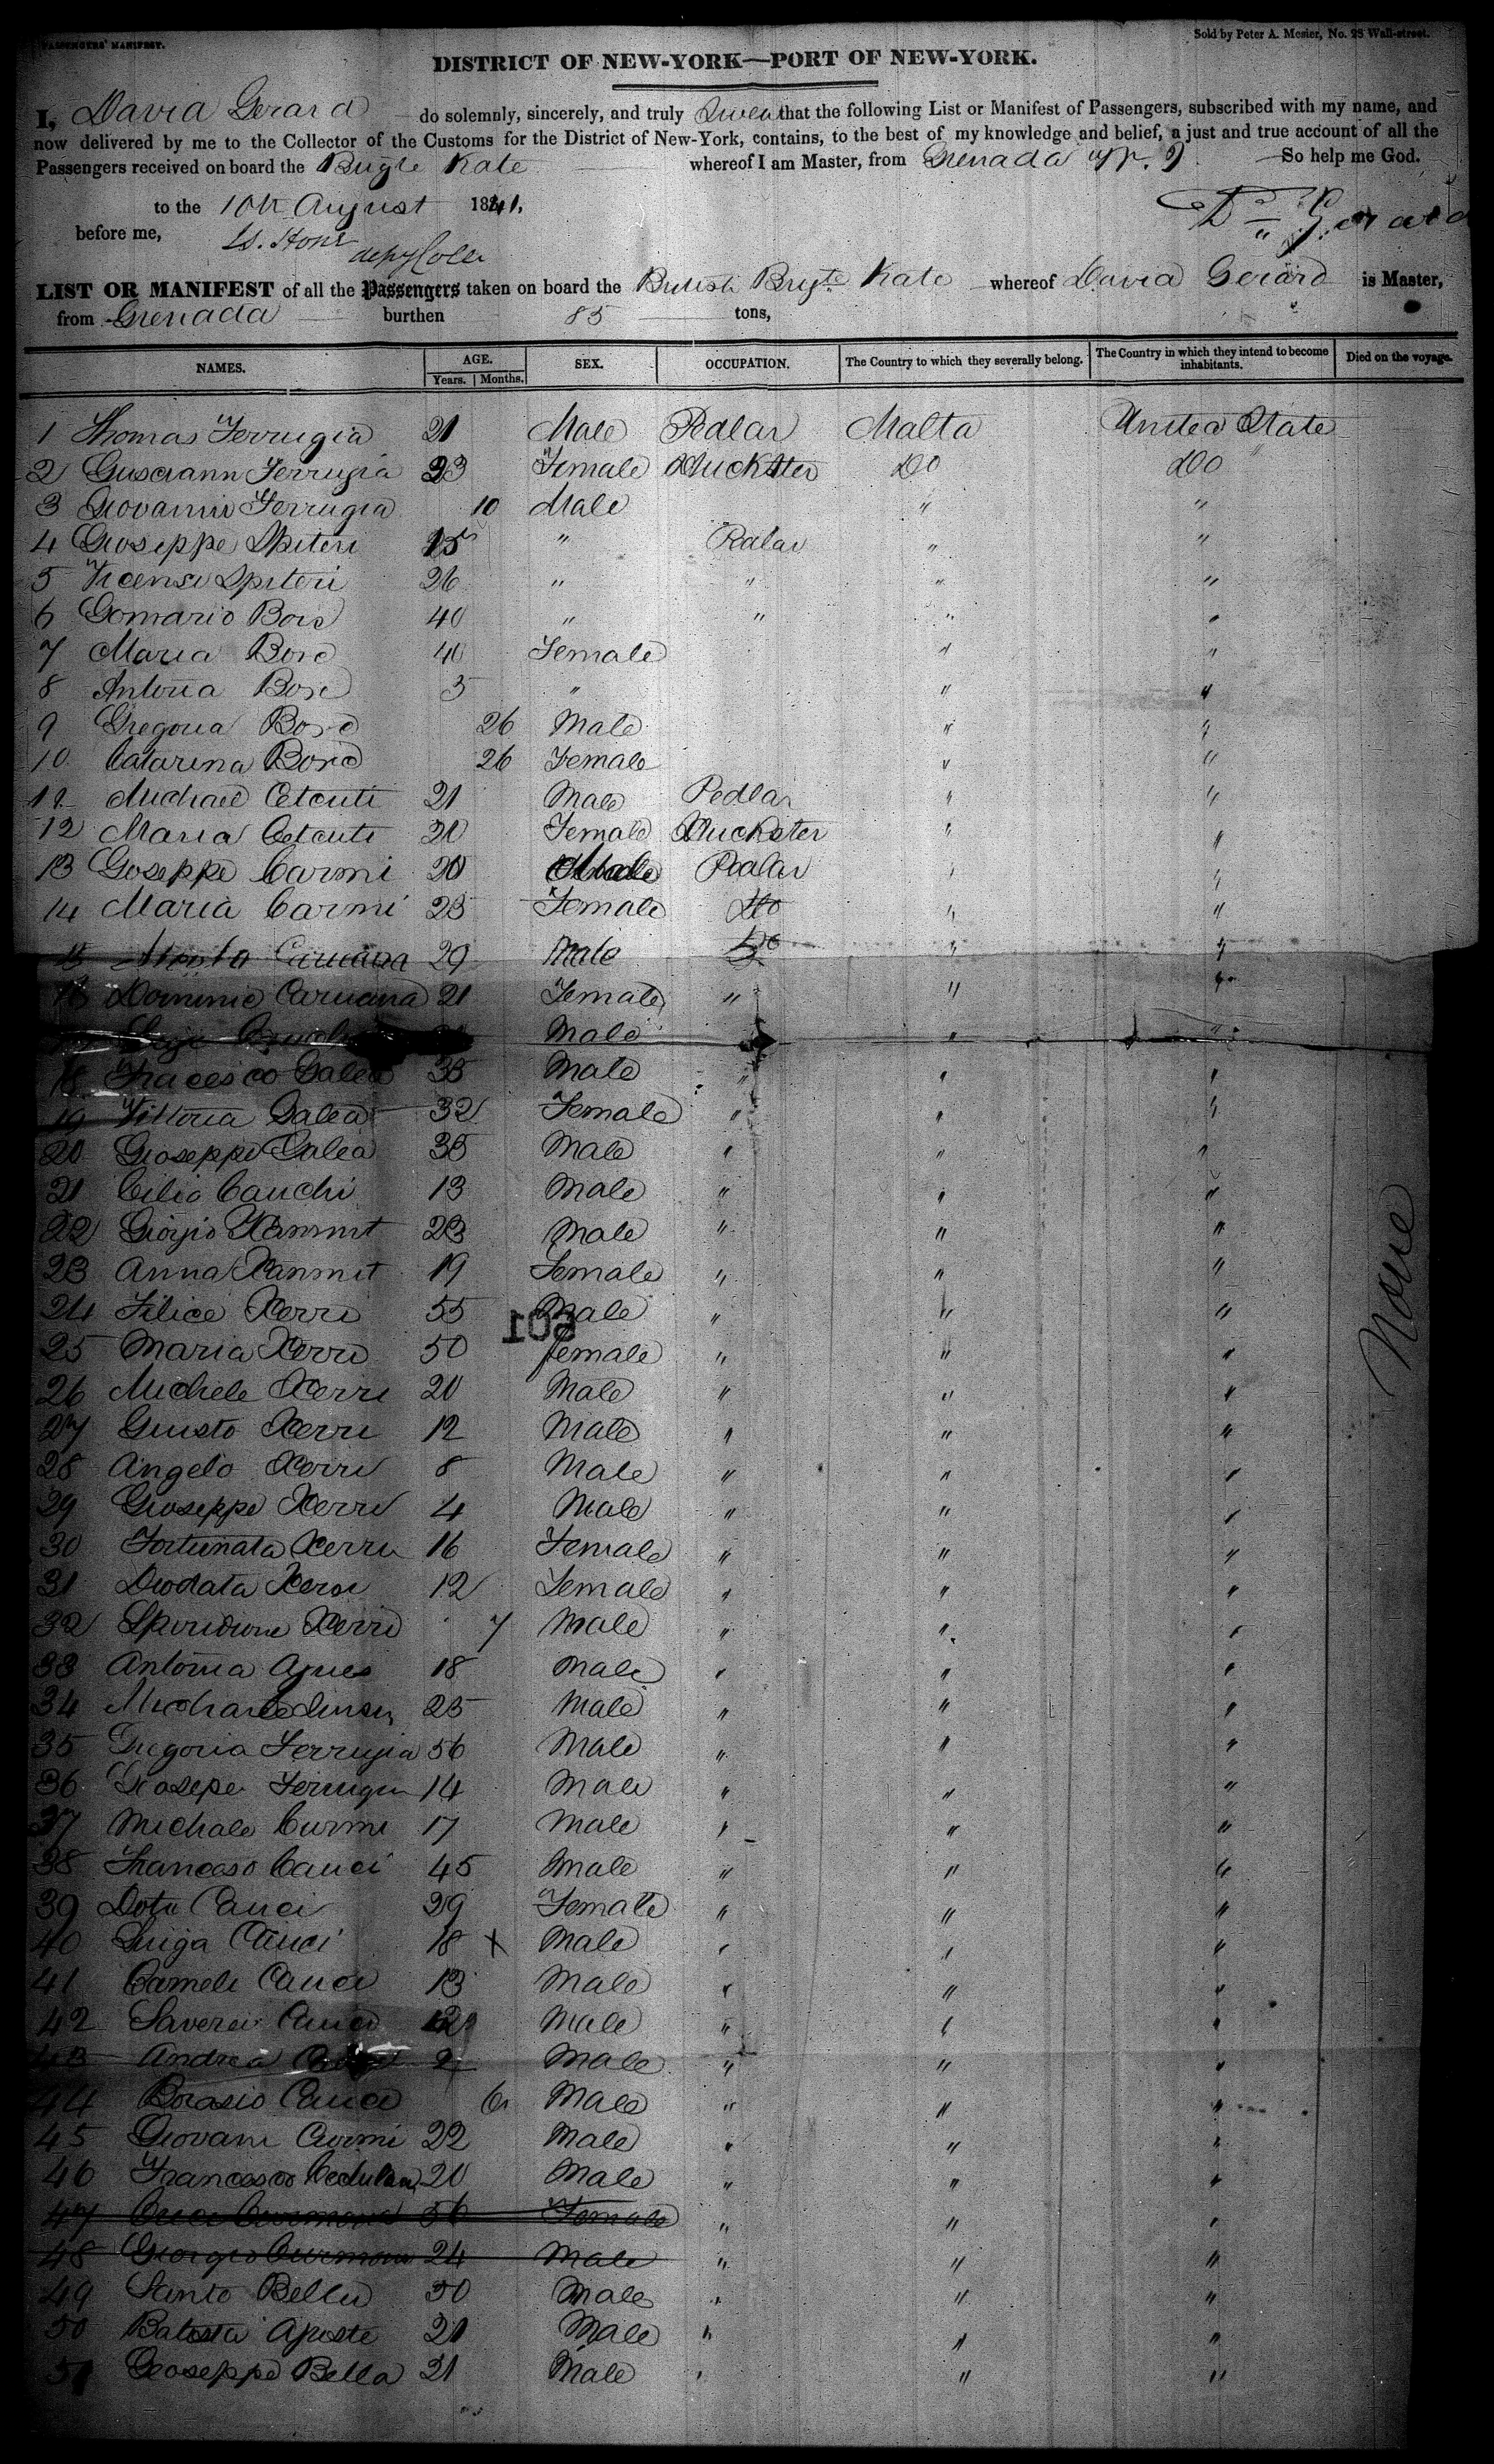 PASSENGERS' MANIFEST.
Sold by Peter A. Mesier, No. 28 Wall-street.
DISTRICT OF NEW-YORK—PORT OF NEW-YORK.
I, David Gerard do solemnly, sincerely, and truly Swear that the following List or Manifest of Passengers, subscribed with my name, and
now delivered by me to the Collector of the Customs for the District of New-York, contains, to the best of my knowledge and belief, a just and true account of all the
Passengers received on board the Brigte Kate whereof I am Master, from Grenada So help me God.
to the 10th August 1841.
D Gerard
before me,
depy Coller
LIST OR MANIFEST of all the Passengers taken on board the British Brigte Kate whereof David Gerard is Master,
from Grenada burthen 85 tons,
NAMES. AGE. SEX. OCCUPATION. The Country to which they severally belong. The Country in which they intend to become inhabitants. Died on the voyage.
Years. Months.
1 Thomas Ferrugia 21 Male Pedlar Malta United State
2 Ferrugia 23 Female Huckster Do Do
3 Giovanni Ferrugia 10 Male " "
4 Gioseppe Spiteri 15 " Pedlar " "
5 Vicensi Spiteri 26 " " " "
6 Gomario 40 " " " "
7 Maria 40 Female " "
8 Antonia 3 " " "
9 Gregoria 26 Male " "
10 Catarina 26 Female " "
11 Michael Cetcuti 21 Male Pedlar " "
12 Maria Cetcuti 20 Female Huckster " "
13 Goseppe Carmi 20 Male Pedlar " "
14 Maria Carmi 23 Female Do " "
15 Caruana 29 Male Do " "
16 Dominic Caruana 21 Female " " "
Male "
18 Fracesco Galea 35 Male " " "
19 Vittoria Galea 32 Female " " "
20 Gioseppe Galea 35 Male " " "
21 Cilio Cauchi 13 Male " " "
22 Giorgio Xammit 23 Male " " "
23 Anna Xanmit 19 Female " " "
24 Filice Xerri 55 Male " " "
601
25 Maria Xerri 50 female " " "
26 Michele Xerri 20 Male " " "
27 Giusto Xerri 12 Male " " "
28 Angelo Xerri 8 Male " " "
29 Gioseppe Xerri 4 Male " " "
30 Fortunata Xerri 16 Female " " "
31 Diodata Xerri 12 Female " " "
32 Spiridione Xerri 7 Male " " "
33 Antonia Agius 18 Male " " "
34 25 Male " " "
35 Gregoria Ferrugia 56 Male " " "
36 Giosepe Ferrugia 14 Male " " "
37 Michale Curmi 17 Male " " "
38 Franceso Cauci 45 Male " " "
39 Cauci 29 Female " " "
40 Luiga Cauci 18 x Male " " "
41 Carmele Cauci 13 Male " " "
42 Saverei Cauci 12 Male " " "
43 Andrea 2 Male " " "
44 Borasio Cauci 6 Male " " "
45 Giovani Curmi 22 Male " " "
46 Francesco 20 Male " " "
47 56 Female " " "
48 Giorgio 24 Male " " "
49 Santo Bella 50 Male " " "
50 Batista Aposte 21 Male " " "
51 Gioseppe Bella 21 Male " " "
None